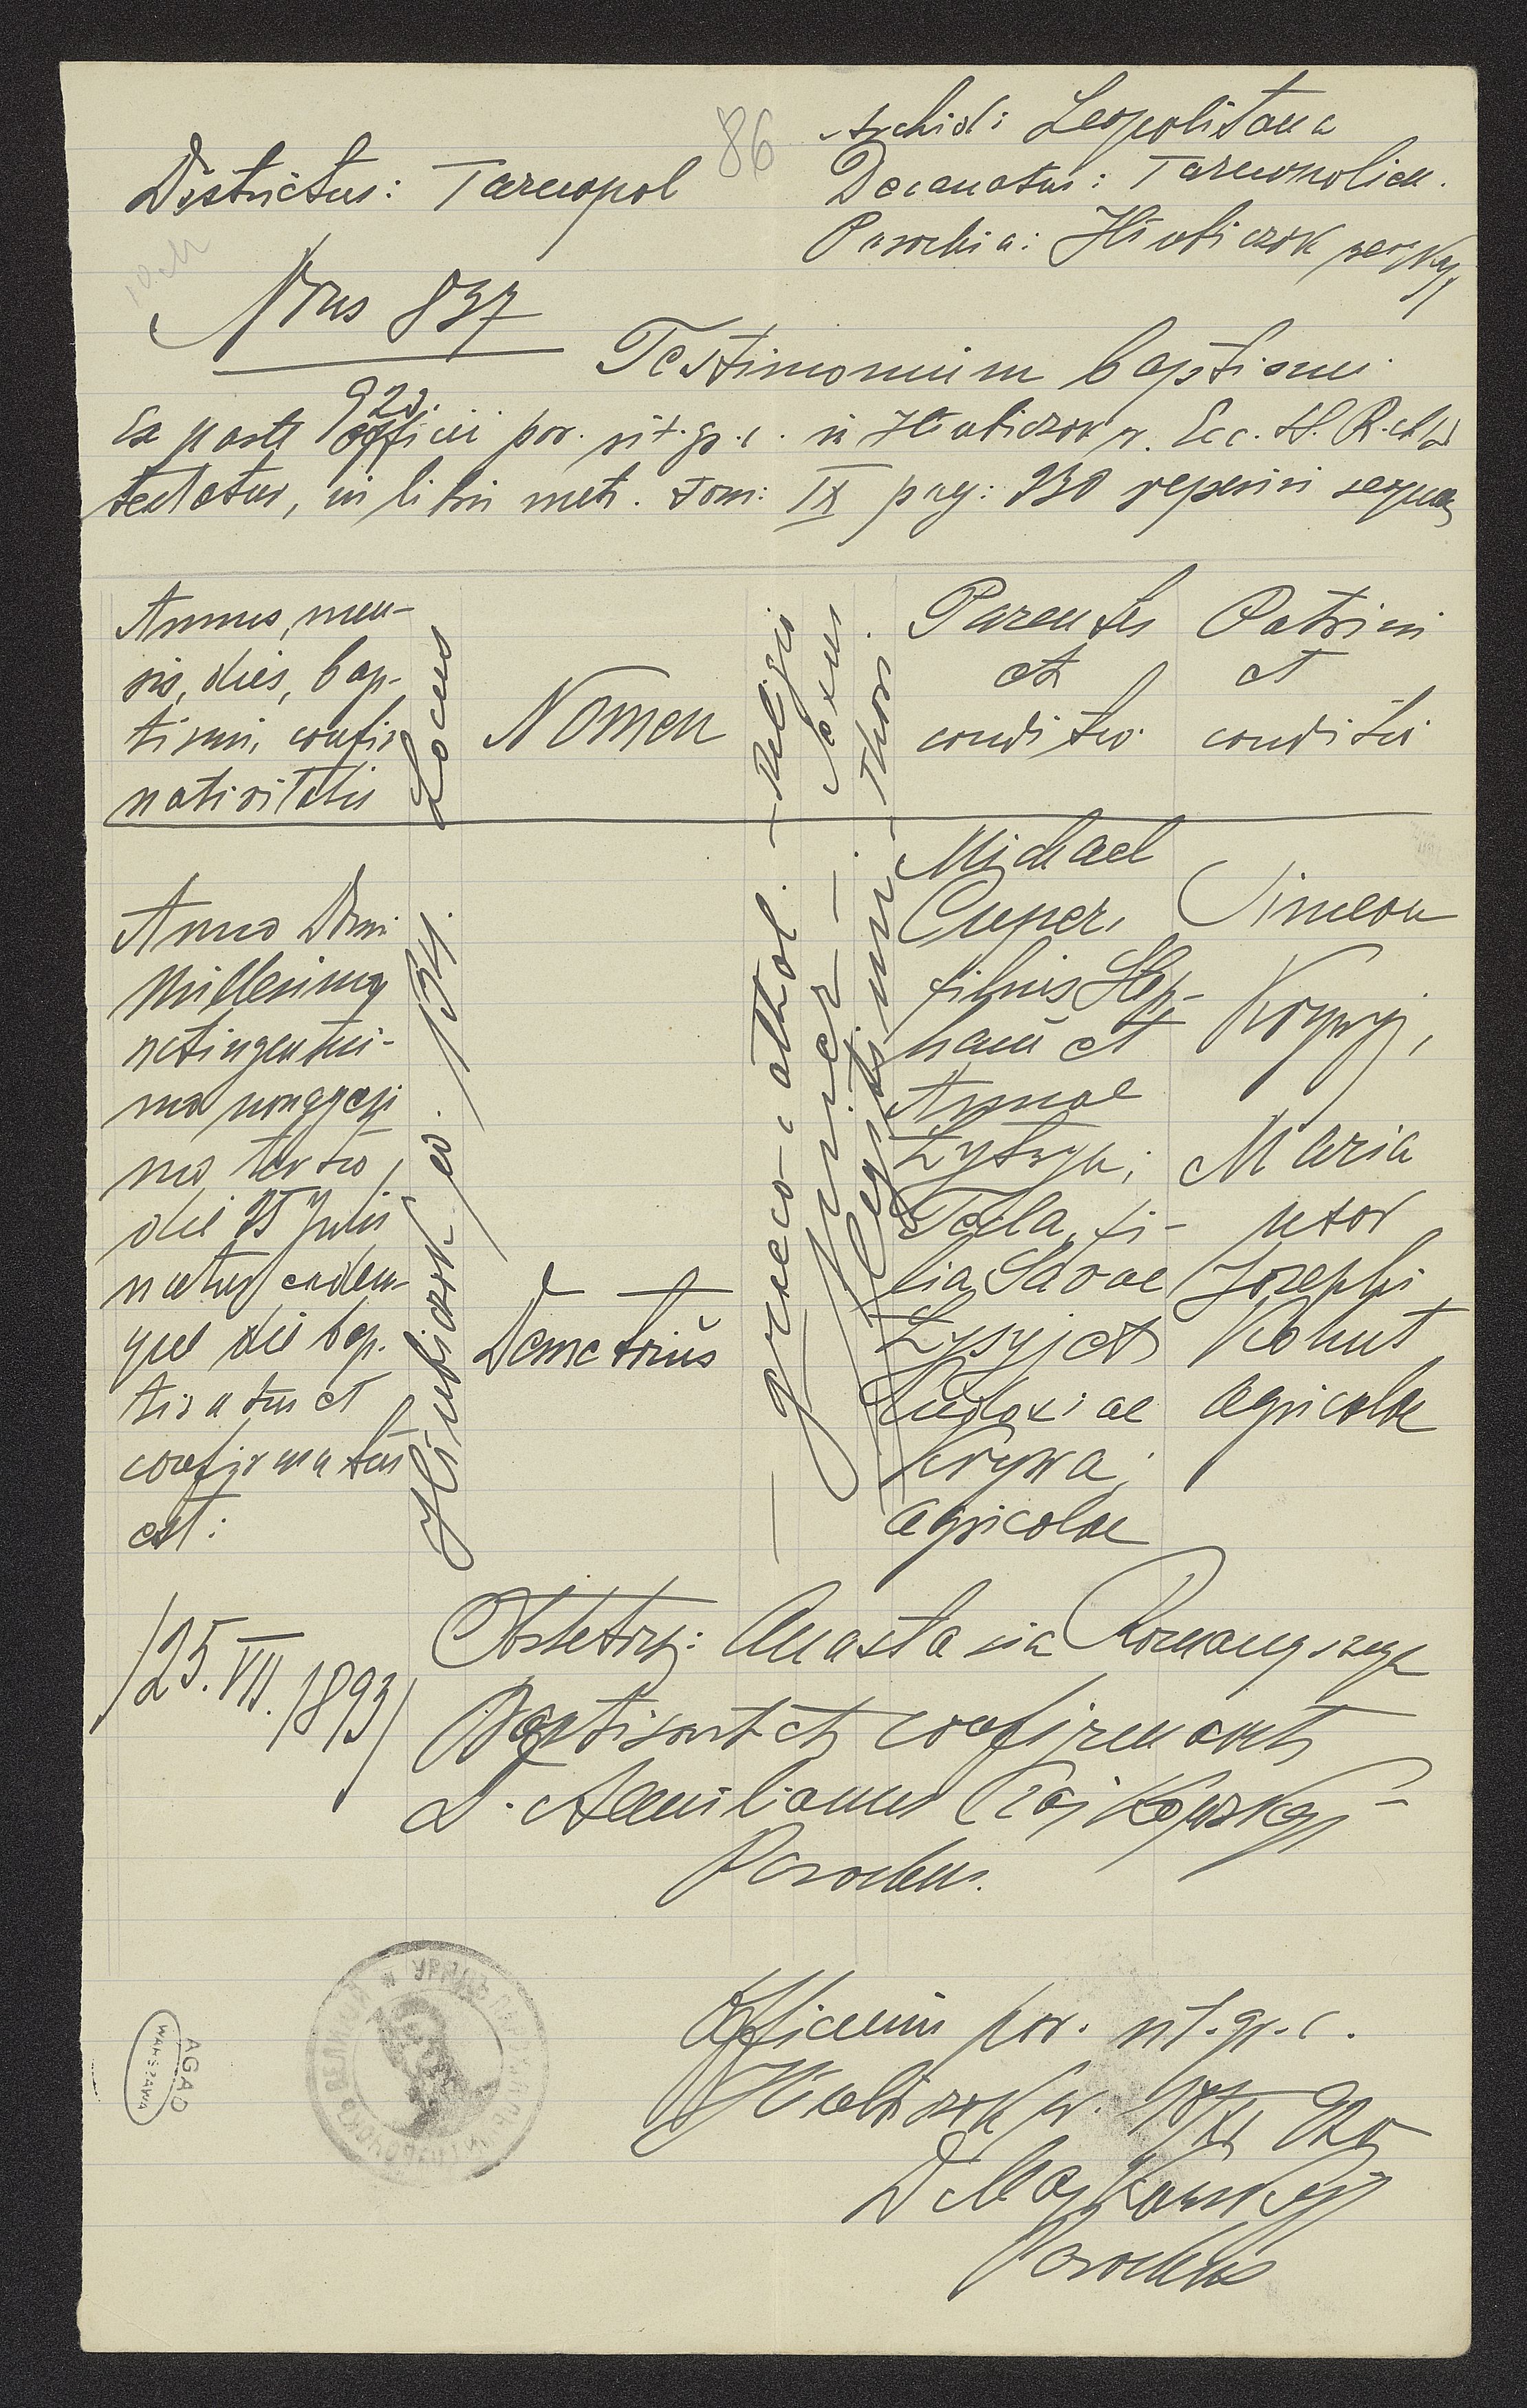 86
Districtus: Tarnopol
Archid: Leopolitana
Decanatus: Tarnopolien.
Parochia: Hłubiczok
Nrus 837
923.
Testimonium baptismi
Ex parte officii par. rit. gr. c. in Hłubiczok w. Ecc. St.
testatur, in libris metr. Tom: IX pag: 230 reperiri sequens
Annus, men-
sis, dies, bap-
tismi, confir
nativitatis
Locus
Nomen
Religio
Sexus
Thori
Parentes
et
conditio
Patrini
et
conditio
Anno Dmni
Millesimo
octingentesi-
mo nonagesi
mo tertio,
die 25 Julii
natus eadem-
que die bap-
tisatus et
confirmatus
est:
/25. VII. 1893/
Hłubiczok w. 134.
Demetrius
graeco-cathol.
puer
legitimi
Michael
Cuper,
filius Step-
hani et
Annae
Łytwyn;
Tecla, fi-
lia Savae
Łysyj et
Eudoxiae
Krywa;
agricolae
Simeon
Krywyj,
Maria
uxor
Josephi
Kohut
agricolae
Obstetrix: Anastasia
Baptisavit et confirmavit
D. Aemilianus
Parochus.
Officium par. rit. gr. c.
Hłubiczok w.
D.
Parochus
AGAD
WARSZAWA